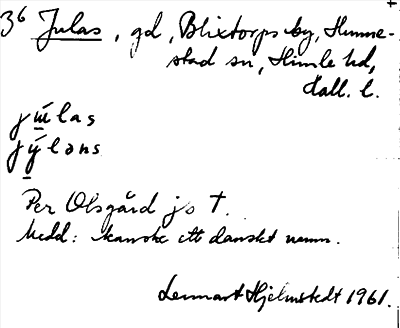 36 Julas, gd, Blixtorps by, Hunne-
stad sn, Himle hd,
Hall. l.
jɯ́las
jýləns
Per Olsgård js †.
Medd: kanske ett danskt namn.
Lennart Hjelmstedt 1961.